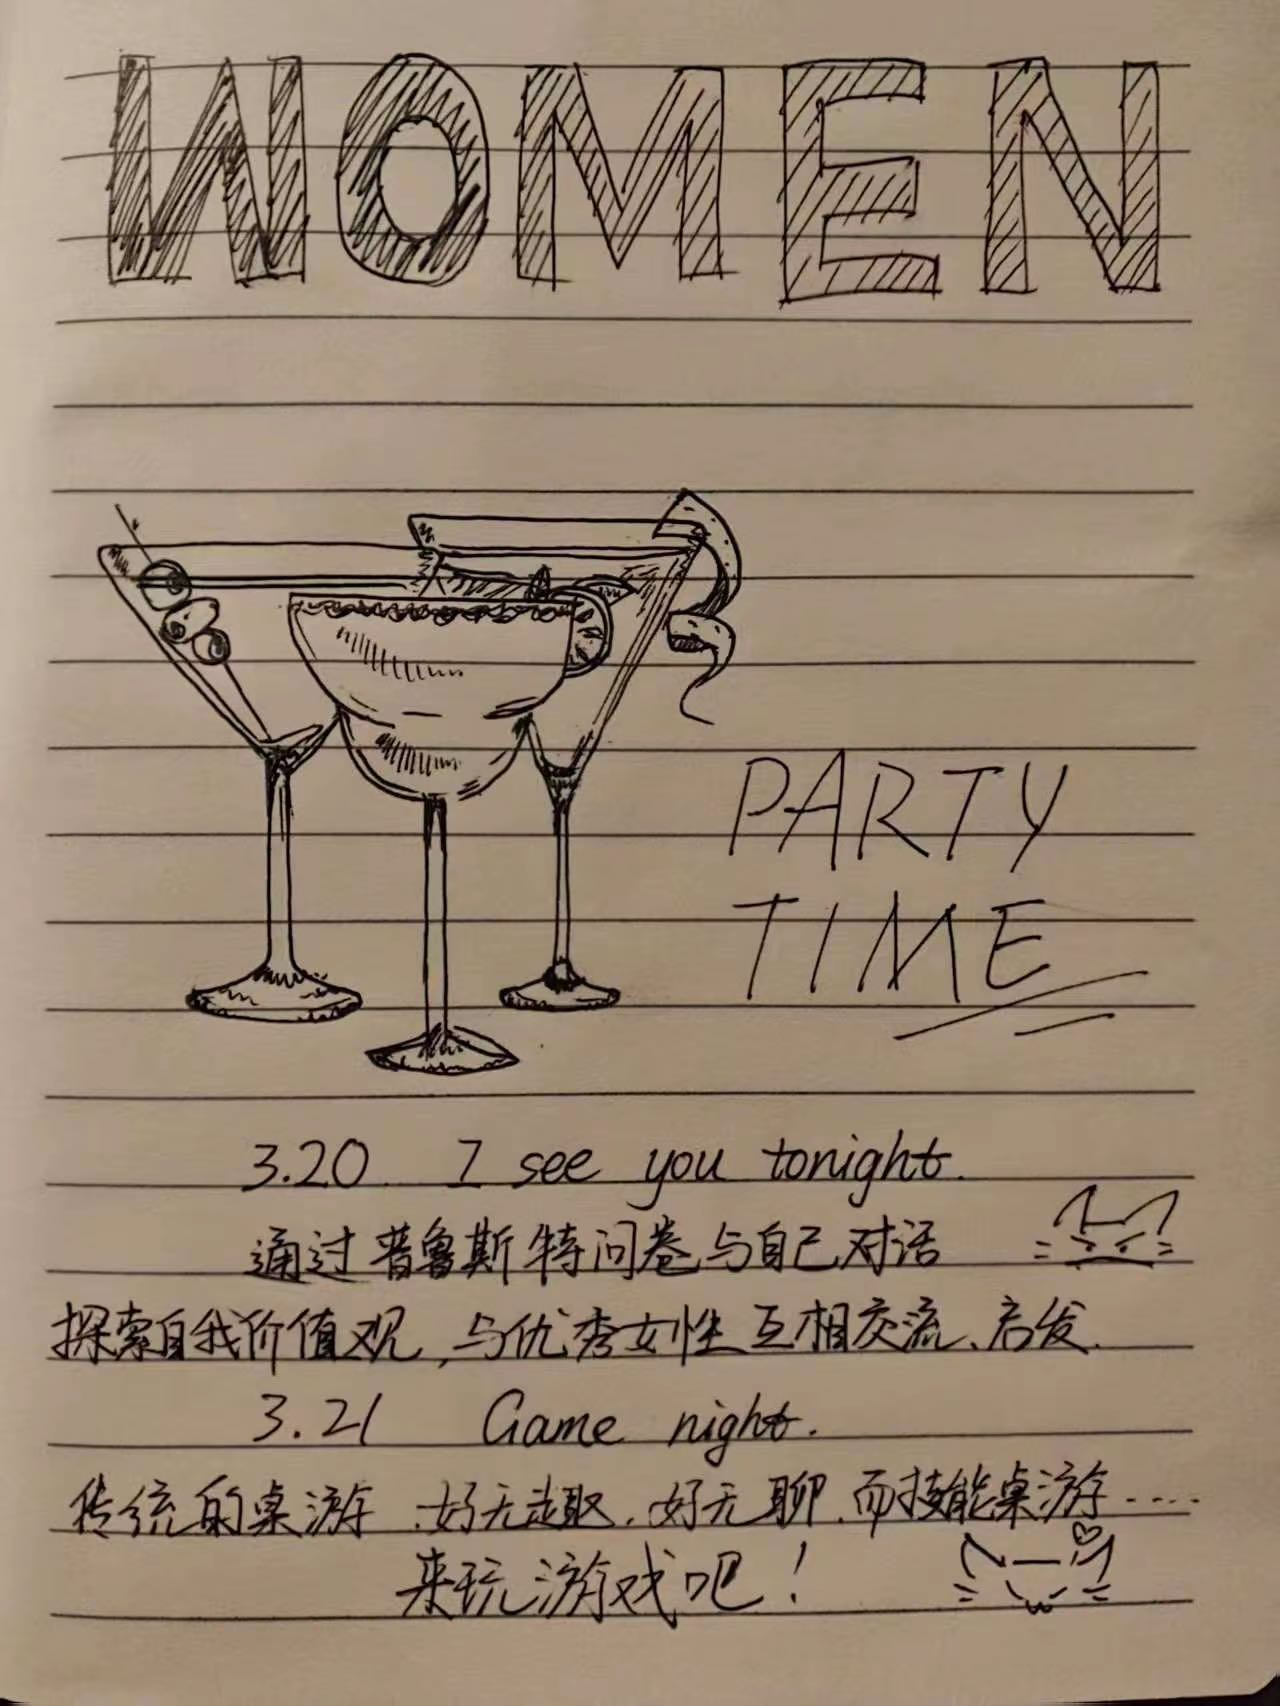 WOMEN
PARTY
TIME
3.20 I see you tonight.
通过普鲁斯特问卷与自己对话
探索自我价值观,与优秀女性互相交流、启发.
3.21 Game night.
传统的桌游,好无趣,好无聊,而技能桌游.....
来玩游戏吧!